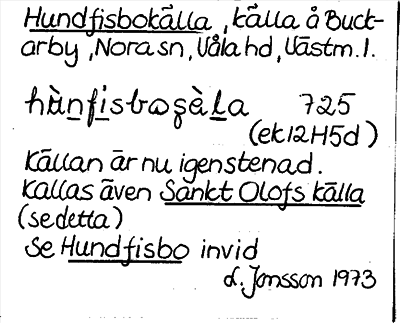 Hundfisbokälla, källa å Buck-
arby, Nora sn, Våla hd, Västm. l.
hùnfisboʂèla 725
(ek 12H5d)
Källan är nu igenstenad.
Kallas även Sankt Olofs källa
(se detta)
Se Hundfisbo invid
L. Jonsson 1973